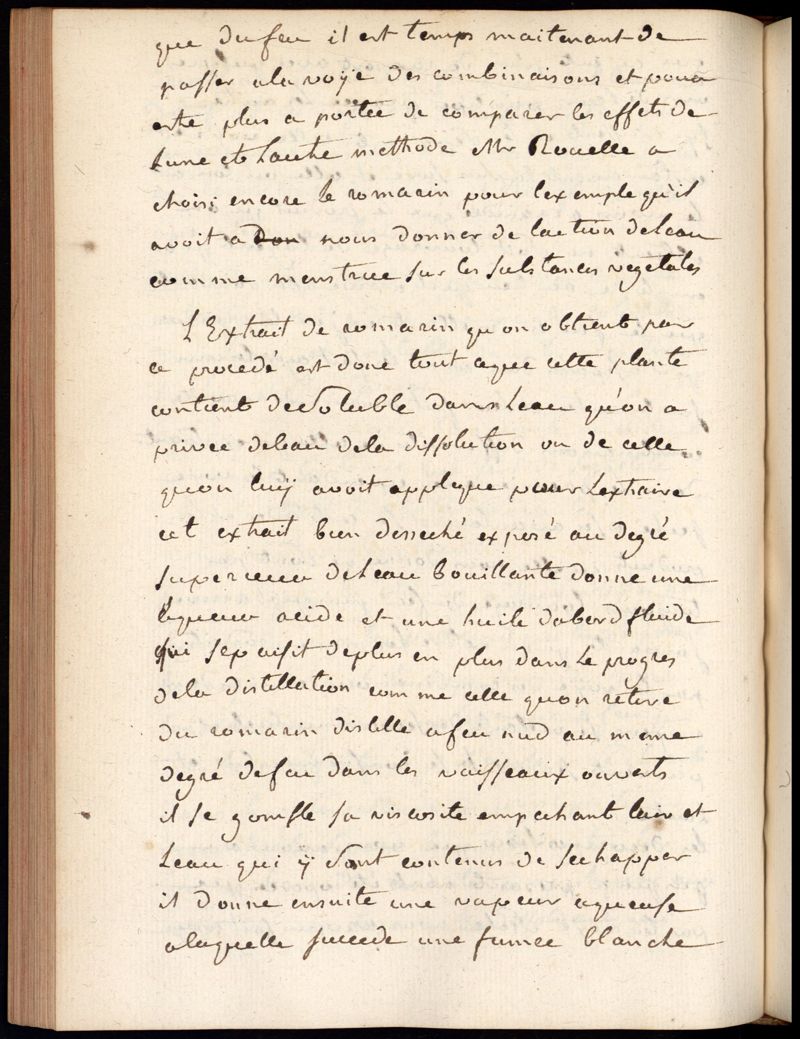 que du feu il est temps maitenant de
passer a la voÿe des combinaisons et pour
estre plus a portée de comparer les effets de
Lune et Lautre methode Mr Rouelle a
choisi encore le romarin pour lexemple qu'il
avoit a don nous donner de laction deleau
comme menstrue sur les substances vegetales
L Extrait de romarin qu on obtient par
ce procedé est donc tout ceque cette plante
contient de Soluble dans Leau qu'on a
privée deleau dela dissolution ou de celle
qu'on luÿ avoit applique pour Lextraire
cet extrait bien desseché exposé au degré
superieur de Leau Bouillante donne une
liqueur acide et une huile dabord fluide
qui sepaisit deplus en plus dans Le progres
dela distillation comme celle quon retire
du romarin distille a feu nud au meme
degré defeu dans les vaisseaux ouverts
il se gonfle sa viscosite empechant lair et
Leau qui ÿ sont contenus de sechapper
il donne ensuite une vapeur aqueuse
a laquelle succede une fumée blanche